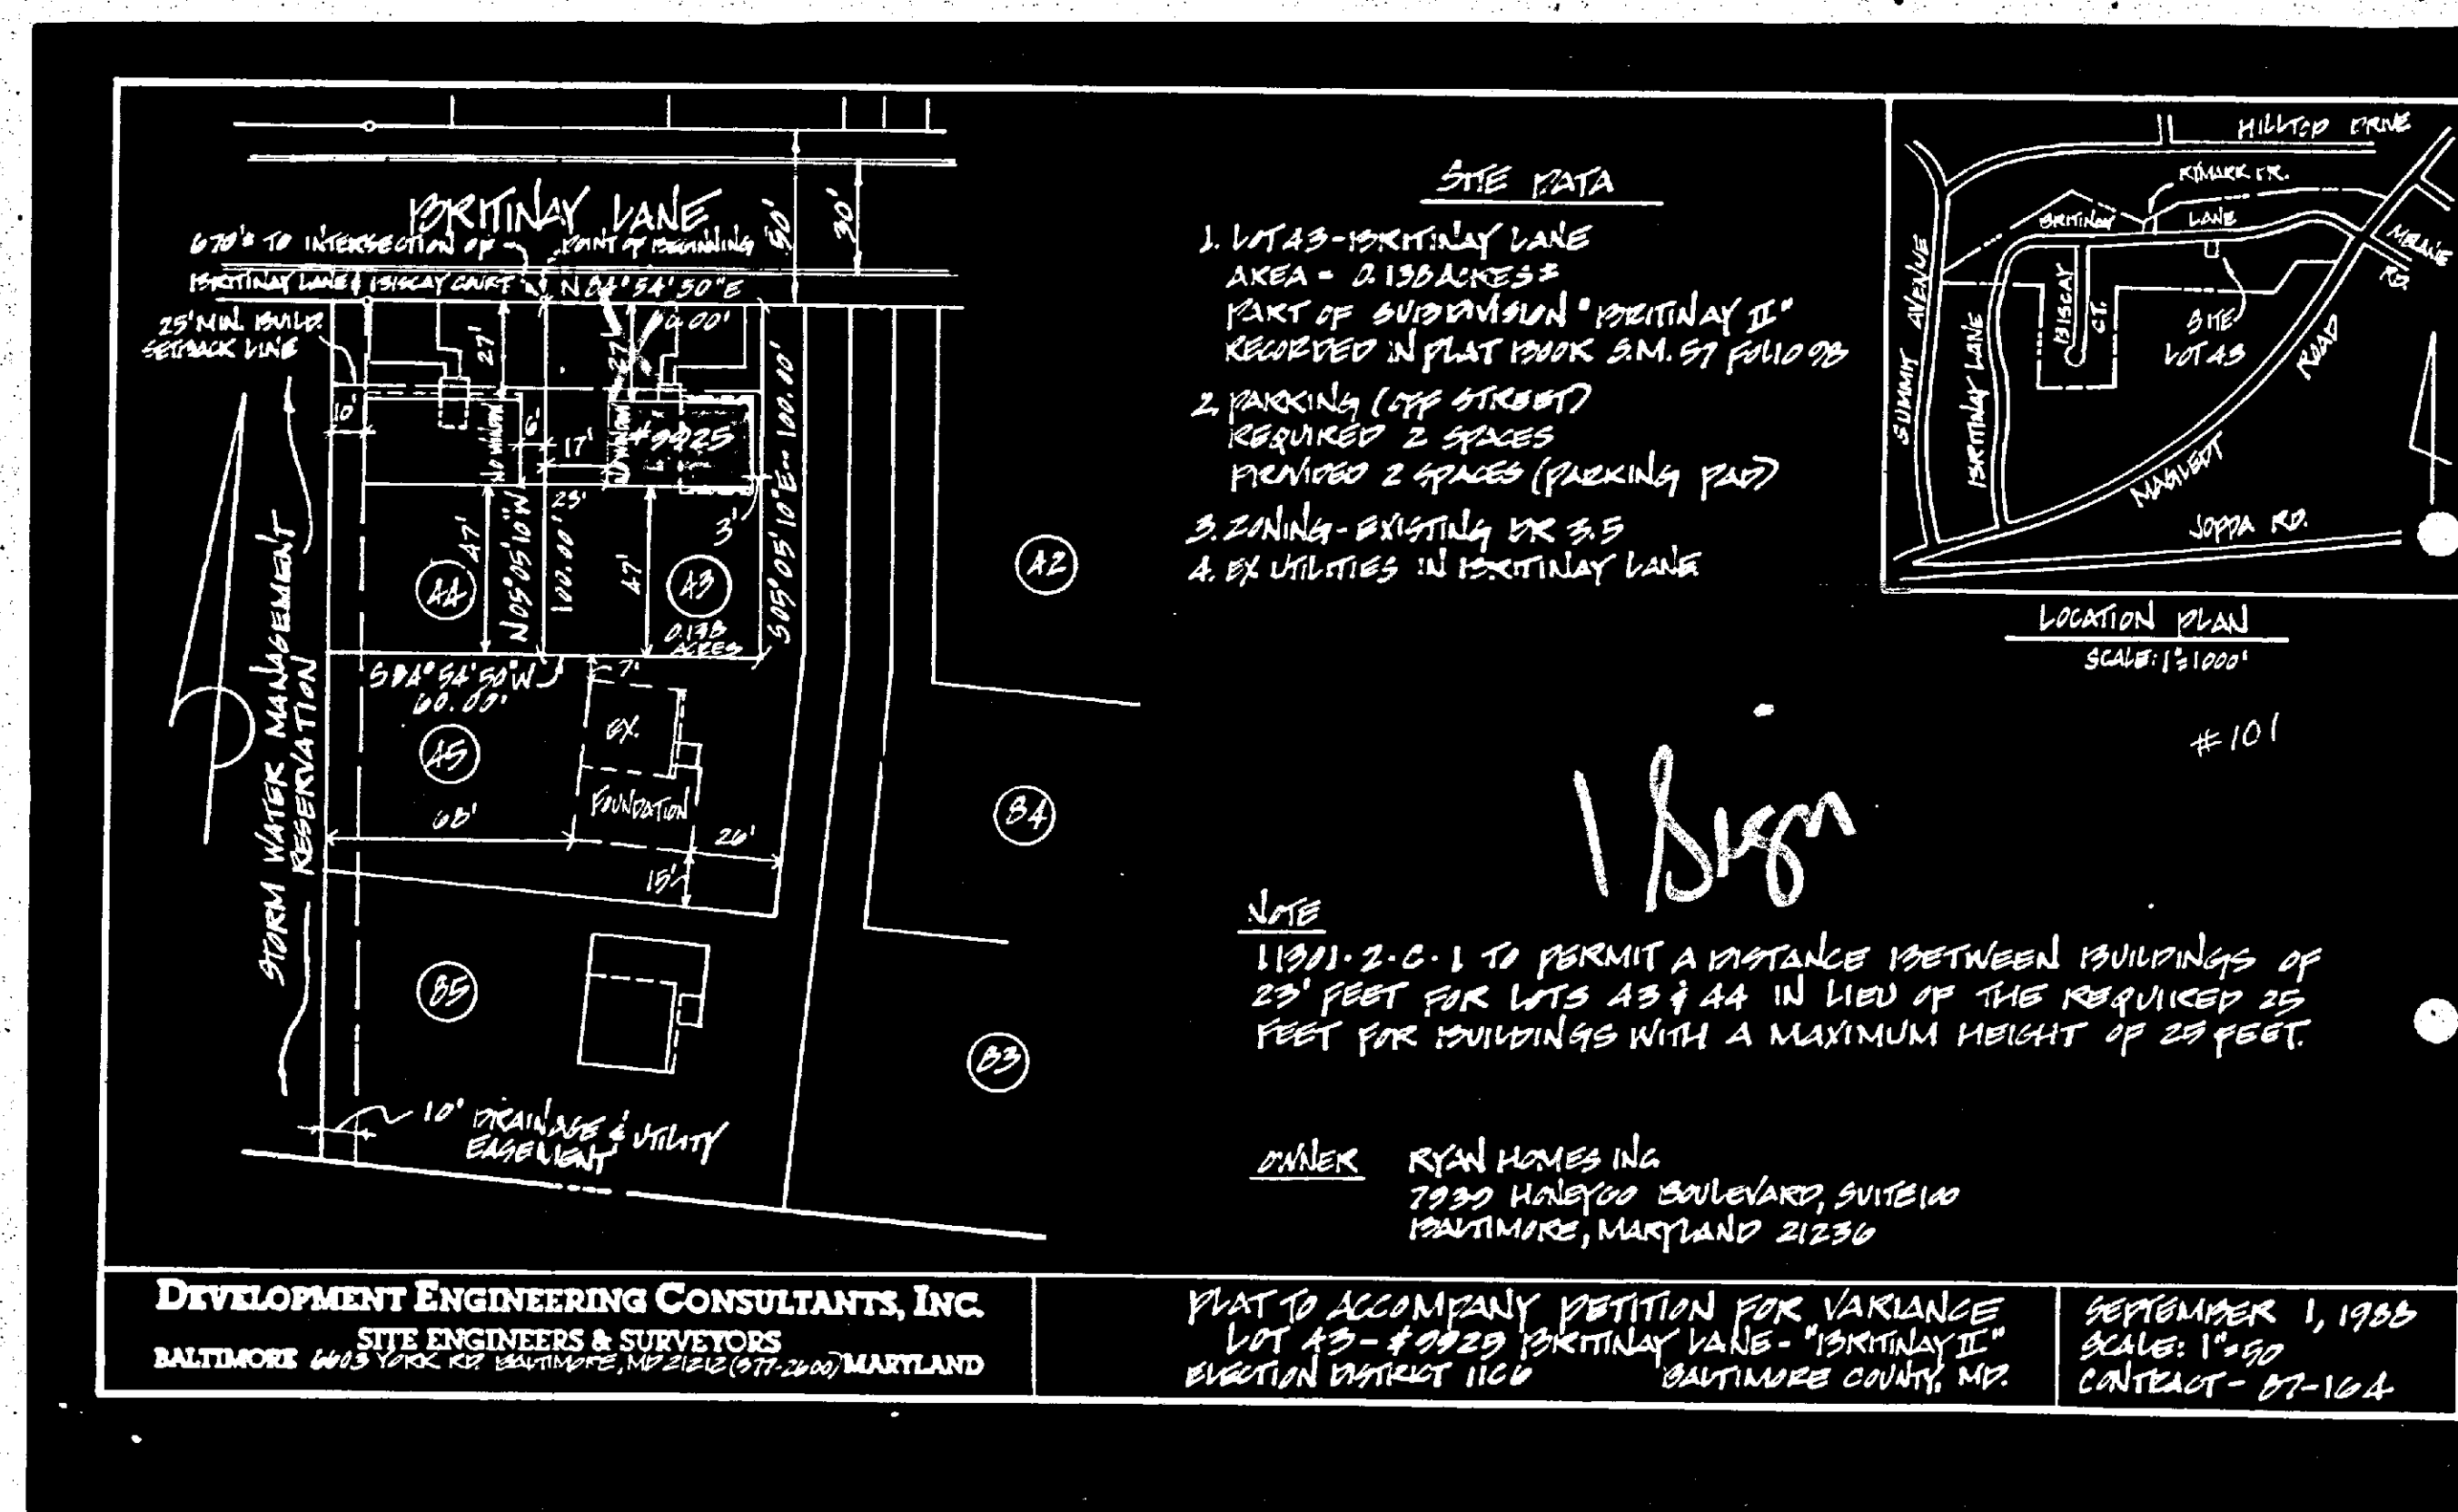 BRITINAY LANE
670'± TO INTERSECTION OF
BRITINAY LANE & BISCAY COURT
POINT OF BEGINNING
N 84° 54' 50" E
60.00'
50'
30'
25' MIN. BUILD.
SETBACK LINE
27'
27'
10'
6'
17'
NO WINDOW
NO WINDOW
#9925
23'
3'
47'
47'
N 05° 05' 10" W
100.00'
S 05° 05' 10" E -- 100.00'
44
43
0.138
ACRES
42
S 84° 54' 50" W
60.00'
7'
EX.
FOUNDATION
45
68'
26'
15'
84
85
83
STORM WATER MANAGEMENT
RESERVATION
10' DRAINAGE & UTILITY
EASEMENT
SITE DATA
1. LOT 43 - BRITINAY LANE
AREA = 0.138 ACRES ±
PART OF SUBDIVISION "BRITINAY II"
RECORDED IN PLAT BOOK S.M. 57 FOLIO 98
2. PARKING (OFF STREET)
REQUIRED 2 SPACES
PROVIDED 2 SPACES (PARKING PAD)
3. ZONING - EXISTING DR 3.5
4. EX UTILITIES IN BRITINAY LANE
HILLTOP DRIVE
RIMARK DR.
BRITINAY LANE
SUMMIT AVENUE
BRITINAY LANE
BISCAY CT.
SITE
LOT 43
MAGLEDT ROAD
RD.
JOPPA RD.
LOCATION PLAN
SCALE: 1"=1000'
#101
1 Sign
NOTE
1B01.2.C.1 TO PERMIT A DISTANCE BETWEEN BUILDINGS OF
23' FEET FOR LOTS 43 & 44 IN LIEU OF THE REQUIRED 25
FEET FOR BUILDINGS WITH A MAXIMUM HEIGHT OF 25 FEET.
OWNER RYAN HOMES INC.
7939 HONEYGO BOULEVARD, SUITE 100
BALTIMORE, MARYLAND 21236
DEVELOPMENT ENGINEERING CONSULTANTS, INC.
SITE ENGINEERS & SURVEYORS
BALTIMORE 6603 YORK RD. BALTIMORE, MD 21212 (377-2600) MARYLAND
PLAT TO ACCOMPANY PETITION FOR VARIANCE
LOT 43 - #9925 BRITINAY LANE - "BRITINAY II"
ELECTION DISTRICT 11C6 BALTIMORE COUNTY, MD.
SEPTEMBER 1, 1988
SCALE: 1"=50
CONTRACT - 87-164